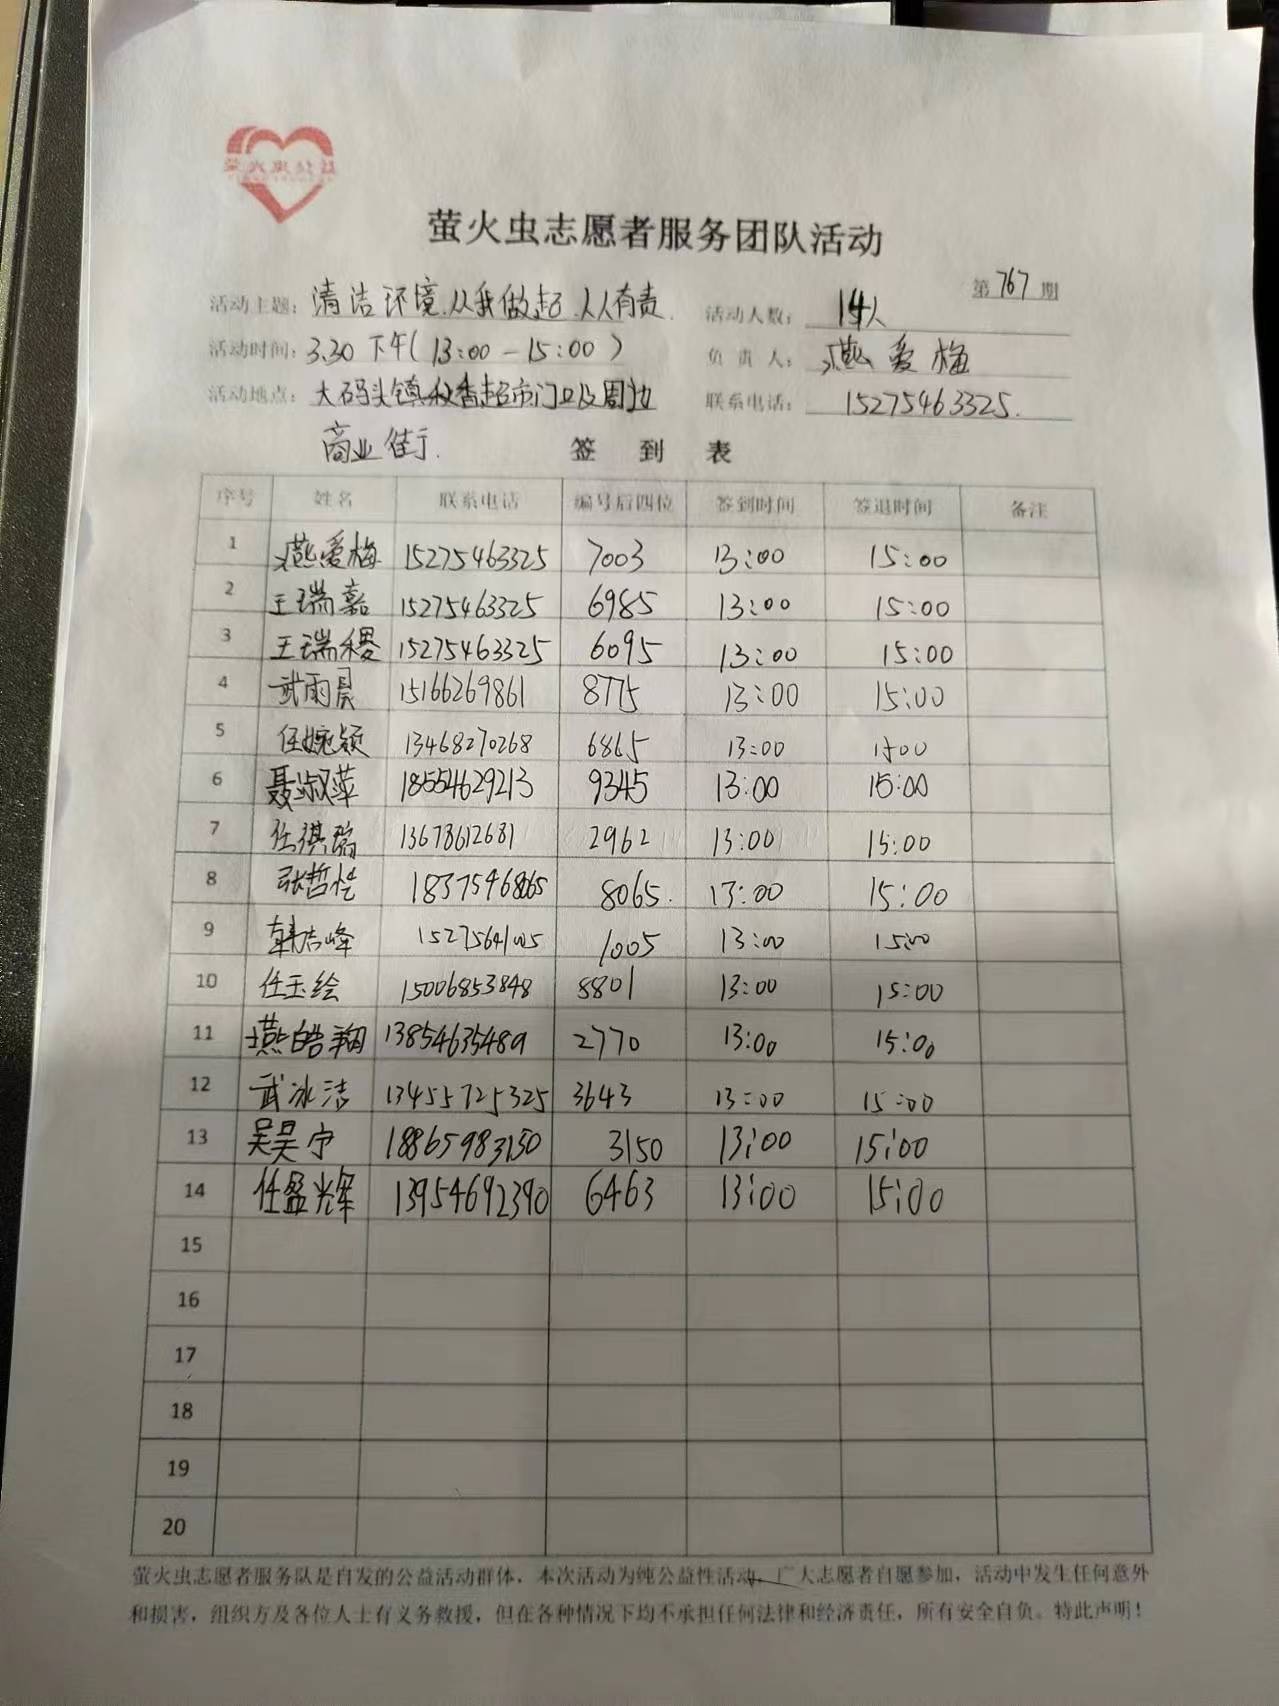 萤火虫志愿者服务团队活动
第767期
活动主题：清洁环境.从我做起.人人有责. 活动人数：14人
活动时间：3.30下午(13:00-15:00) 负责人：燕爱梅
活动地点：大码头镇秋香超市门口及周边 联系电话：15275463325.
商业街. 签到表
序号 姓名 联系电话 编号后四位 签到时间 签退时间 备注
1 燕爱梅 15275463325 7003 13:00 15:00
2 王瑞嘉 15275463325 6985 13:00 15:00
3 王瑞稷 15275463325 6095 13:00 15:00
4 武雨晨 15166269861 8775 13:00 15:00
5 任婉颖 13468270268 6865 13:00 15:00
6 聂淑萍 18554629213 9345 13:00 15:00
7 任祺瑞 13678612681 2962 13:00 15:00
8 张哲恺 8065. 13:00 15:00
9 韩志峰 15275641005 1005 13:00 15:00
10 任玉绘 15006853848 8801 13:00 15:00
11 燕皓翔 13854635489 2770 13:00 15:00
12 武冰洁 13455725325 3643 13:00 15:00
13 吴昊宇 18865983150 3150 13:00 15:00
14 任盈辉 13954692390 6463 13:00 15:00
15
16
17
18
19
20
萤火虫志愿者服务队是自发的公益活动群体，本次活动为纯公益性活动，广大志愿者自愿参加，活动中发生任何意外
和损害，组织方及各位人士有义务救援，但在各种情况下均不承担任何法律和经济责任，所有安全自负。特此声明！